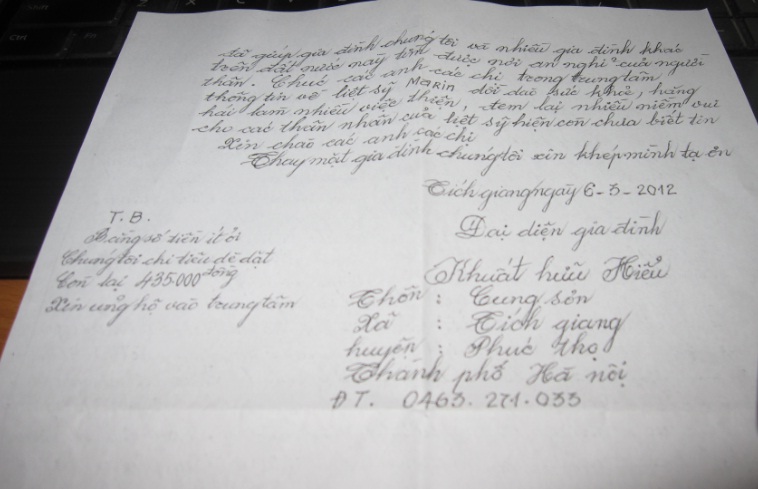 đã giúp gia đình chúng tôi và nhiều gia đình khác
trên đất nước này tìm được nơi an nghỉ của người
thân. Chúc các anh các chị trong trung tâm
thông tin về liệt sỹ MaRin dồi dào sức khỏe, hăng
hái làm nhiều việc thiện, đem lại nhiều niềm vui
cho các thân nhân của liệt sỹ hiện còn chưa biết tin
Xin chào các anh các chị
Thay mặt gia đình chúng tôi xin khép mình tạ ơn
Tích giang ngày 6-3-2012
T.B.
Bằng số tiền ít ỏi
Chúng tôi chi tiêu dè dặt
Còn lại 435.000 đồng
Xin ủng hộ vào trung tâm
Đại diện gia đình
Khuất hữu Hiểu
Thôn : Cung sơn
Xã : Tích giang
huyện : Phúc thọ
Thành phố Hà nội
ĐT. 0463.271.033